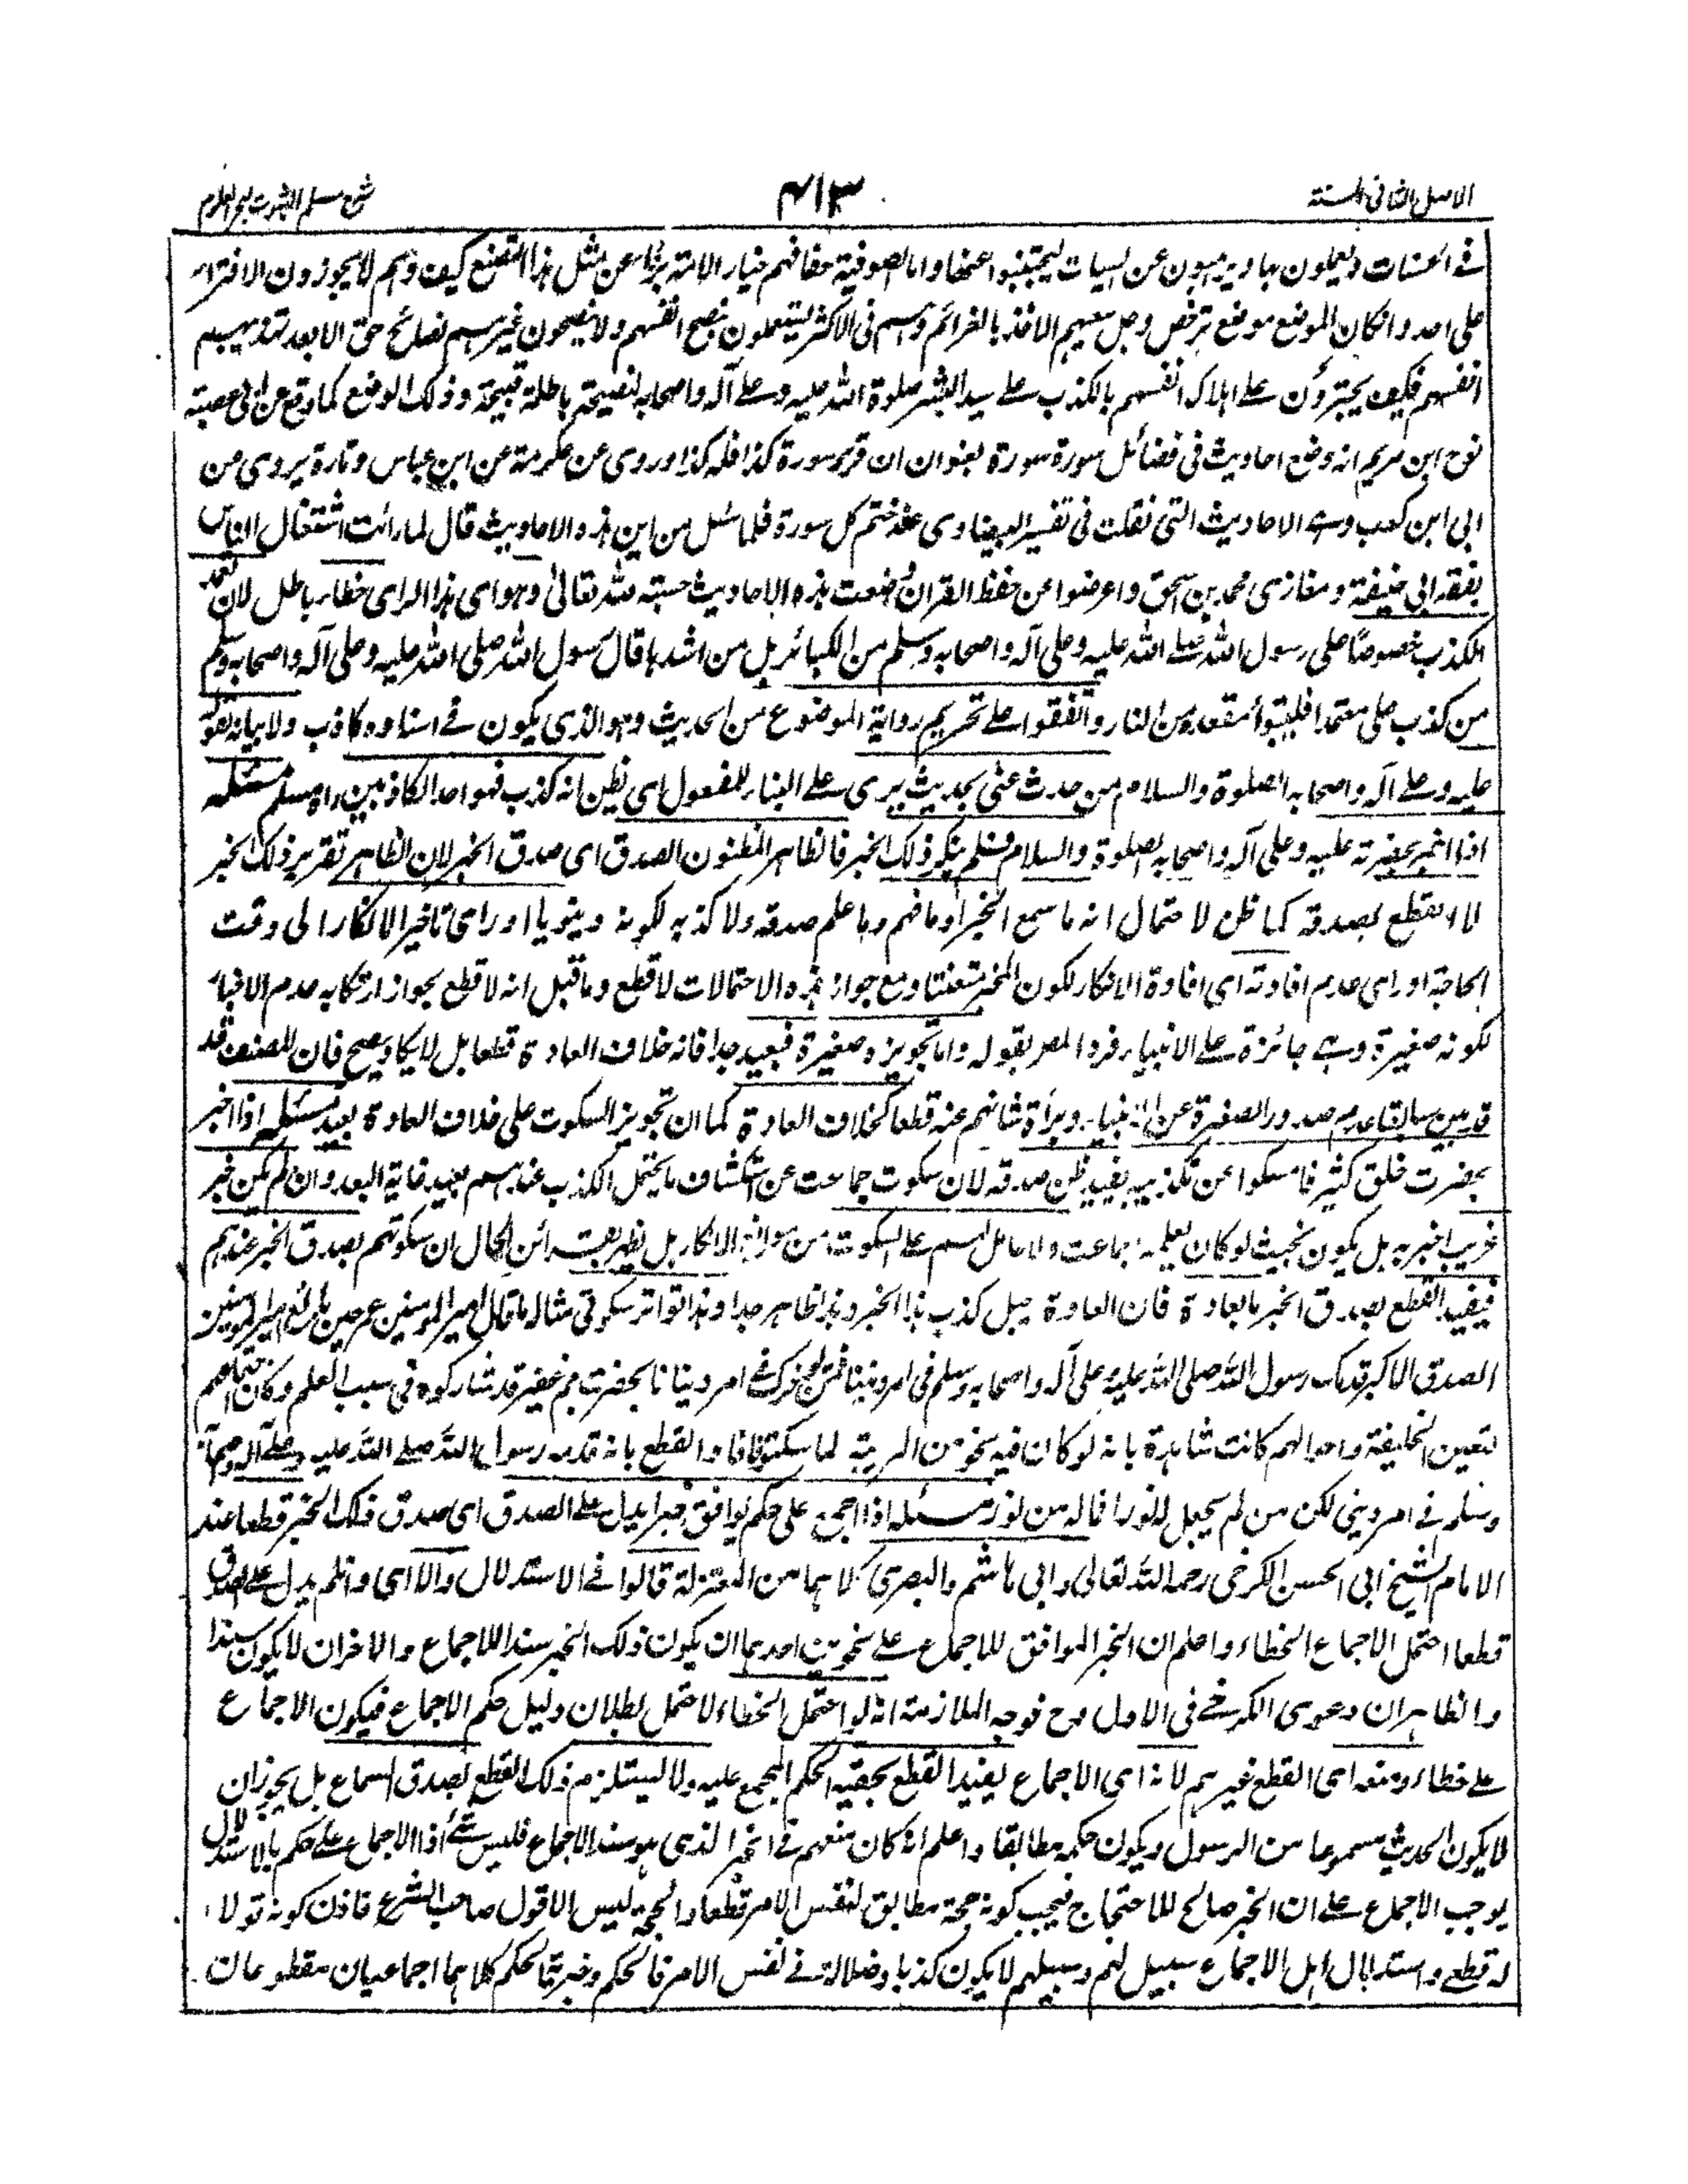 الاصل الثانی السنة
۴۱۳
شرح مسلم الثبوت لبحر العلوم
فے الحسنات ویعملون بها ویرهبون عن السیات لیجتنبوا عنها واما الصوفیة حقا فهم خیار الامة برآء عن مثل هذا التصنع کیف وهم لا یجوزون الافتراء
علی احد وان کان الموضع موضع ترخص وجل سعیهم الاخذ بالعزائم وهم فی الاکثر یشتغلون بنصح انفسهم ولا ینصحون غیرهم نصائح حق الا بعد تهذیبهم
انفسهم فکیف یجترؤن علے اهلاک انفسهم بالکذب علے سید البشر صلوة الله علیه وعلے آله واصحابه لنصیحة باطلة قبیحة وذلک الوضع کما وقع عن ابی عصمة
نوح ابن مریم انه وضع احادیث فی فضائل سورة سورة بعنوان ان قرء سورة کذا فله کذا وروی عن عکرمة عن ابن عباس وتارة یروی من
ابی ابن کعب وهے الاحادیث التی نقلت فی تفسیر البیضاوی عند ختم کل سورة فلما سئل من این هذه الاحادیث قال لما رأیت اشتغال الناس
بفقه ابی حنیفة ومغازی محمد بن اسحق واعرضوا عن حفظ القرآن وضعت هذه الاحادیث حسبة لله تعالی وهو ای هذا الرای خطاء باطل لان تعمد
الکذب خصوصًا علی رسول الله صلے الله علیه وعلی آله واصحابه وسلم من الکبائر بل من اشدها قال رسول الله صلی الله علیه وعلی آله واصحابه وسلم
من کذب علی متعمدا فلیتبوأ مقعده من النار واتفقوا علے تحریم روایة الموضوع من الحدیث وهو الذی یکون فے اسناده کاذب ولا بیانه لقوله
علیه وعلے آله واصحابه الصلوة والسلام من حدث عنی بحدیث یری علے البناء للمفعول ای یظن انه کذب فهو احد الکاذبین رواه مسلم مسئلة
اذا اخبر بحضرته علیه وعلی آله واصحابه الصلوة والسلام فلم ینکر ذلک الخبر فالظاهر المظنون الصدق ای صدق الخبر لان الظاهر تقریر ذلک الخبر
لا القطع بصدقه کما ظن لاحتمال انه ما سمع الخبر او ما فهم وما علم صدقه ولا کذبه لکونه دنیویا او رای تاخیر الانکار الی وقت
الحاجة او رای عدم افادته ای افادة الانکار لکون المخبر متعنتا ومع جواز هذه الاحتمالات لا قطع وما قیل انه لا قطع بجواز ارتکابه عدم الاخبار
لکونه صغیرة وهے جائزة علے الانبیاء فرد المصر بقوله واما تجویزه صغیرة فبعید جدا فانه خلاف العادة قطعا بل لا یکاد یصح فان المصنف قد
قد بین سابقا عدم صدور الصغیرة عن الانبیاء وبرأة شانهم عنه قطعا کخلاف العادة کما ان تجویز السکوت علی خلاف العادة بعید مسئلة اذا اخبر
بحضرت خلق کثیر فامسکوا عن تکذیبه یفید ظن صدقه لان سکوت جماعت عن استکشاف ما یحتمل الکذب عندهم بعید غایة البعد وان لم یکن خبر
غریب اخبر به بل یکون بحیث لو کان یعلمه جماعت ولا حامل لهم علے السکوت من موانع الانکار بل یظهر بقرائن الحال ان سکوتهم بصدق الخبر عندهم
فیفید القطع بصدق الخبر بالعادة فان العادة تحیل کذب هذا الخبر وهذا ظاهر جدا وهذا تواتر سکوتی مثاله ما قال امیر المومنین عمر حین بایع امیر المومنین
الصدیق الاکبر قدمک رسول الله صلی الله علیه وعلی آله واصحابه وسلم فی امر دیننا فمن یؤخرک فے امر دنیانا بحضرت جم غفیر قد شارکوه فی سبب العلم وکان اهتمامهم
لتعین الخلیفة واحوالهم کانت شاهدة بانه لو کان فیه نحو من الریبة لما سکتوا فافاد القطع بانه قدمه رسول الله صلے الله علیه وعلے آله واصحابه
وسلم فے امر دینی لکن من لم یجعل له نورا فما له من نور مسئله اذا اجمع علی حکم یوافق خبرا یدل علے الصدق ای صدق ذلک الخبر قطعا عند
الامام الشیخ ابی الحسن الکرخی رحمه الله تعالی وابی هاشم والبصری کلاهما من المعتزلة قالوا فے الاستدلال والا ای وان لم یدل علے الصدق
قطعا احتمل الاجماع الخطاء واعلم ان الخبر الموافق للاجماع علے نحوین احدهما ان یکون ذلک الخبر سندا للاجماع والاخر ان لا یکون سندا
والظاهر ان دعوی الکرخے فی الاول وح فوجه الملازمة انه لو احتمل الخطاء لاحتمل بطلان دلیل حکم الاجماع فیکون الاجماع
علے خطاء ومنعه ای القطع غیرهم لانه ای الاجماع یفید القطع بحقیة الحکم المجمع علیه ولا یستلزم ذلک القطع بصدق السماع بل یجوز ان
لا یکون الحدیث مسموعا من الرسول ویکون حکمه مطابقا واعلم انه کان منعهم فے الخبر الذی هو سند الاجماع فلیس بشئ اذ الاجماع علے حکم بالاستدلال
یوجب الاجماع علے ان الخبر صالح للاحتجاج فیجب کونه حجة مطابق لنفس الامر قطعا والحجة لیس الا قول صاحب الشرع فاذن کونه قولا
له قطعے واستدلال اهل الاجماع سبیل لهم وسبیلهم لا یکون کذبا وضلالة فے نفس الامر فالحکم وخبریة الحکم کلاهما اجماعیان مقطوعان